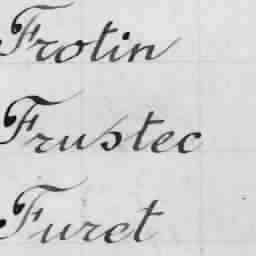 Frotin
Frustec
Furet